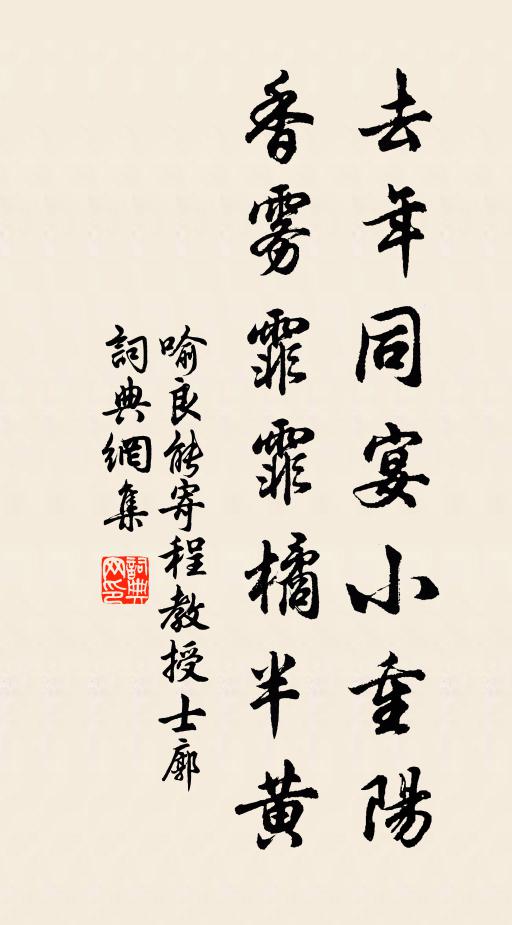 去年同宴小重陽
香雾霏霏橘半黄
喻良能寄程教授士廓
詞典網集
詞典网印